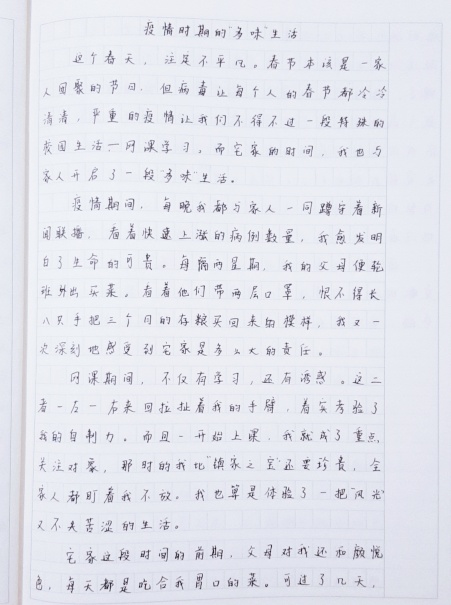 疫情时期的"多味"生活
这个春天，注定不平凡。春节本该是一家
人团聚的节日，但病毒让每个人的春节都冷冷
清清，严重的疫情让我们不得不过一段特殊的
校园生活—网课学习。而宅家的时间，我也与
家人开启了一段"多味"生活。
疫情期间，每晚我都与家人一同蹲守着新
闻联播，看着快速上涨的病例数量，我愈发明
白了生命的可贵。每隔两星期，我的父母便轮
班外出买菜。看着他们带两层口罩，恨不得长
八只手把三个月的存粮买回来的模样，我又一
次深刻地感受到宅家是多么大的责任。
网课期间，不仅有学习，还有诱惑。这二
者一左一右来回拉扯着我的手臂，着实考验了
我的自制力。而且一开始上课，我就成了重点
关注对象，那时的我比"镇家之宝"还要珍贵，全
家人都盯着我不放。我也算是体验了一把"风光"
又不失苦涩的生活。
宅家这段时间的前期，父母对我还和颜悦
色，每天都是吃合我胃口的菜。可过了几天，